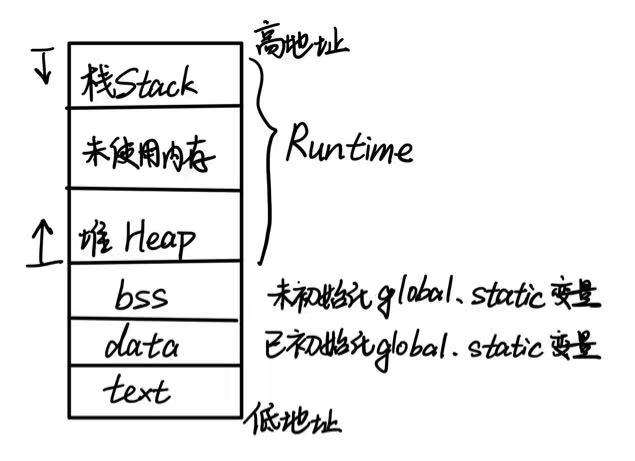 高地址
栈Stack
未使用内存
Runtime
堆 Heap
bss
未初始化global、static变量
data
已初始化global、static变量
text
低地址